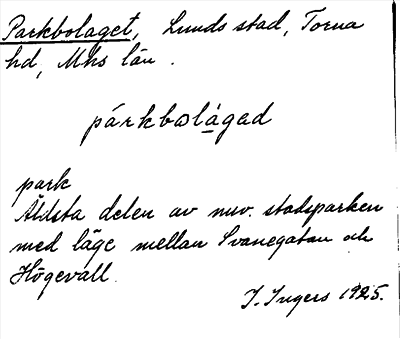 Parkbolaget, Lunds stad, Torna
hd, Mhs län.
párkbωlàgəd
park
Äldsta delen av nuv. stadsparken
med läge mellan Svanegatan och
Högevall.
I. Ingers 1925.